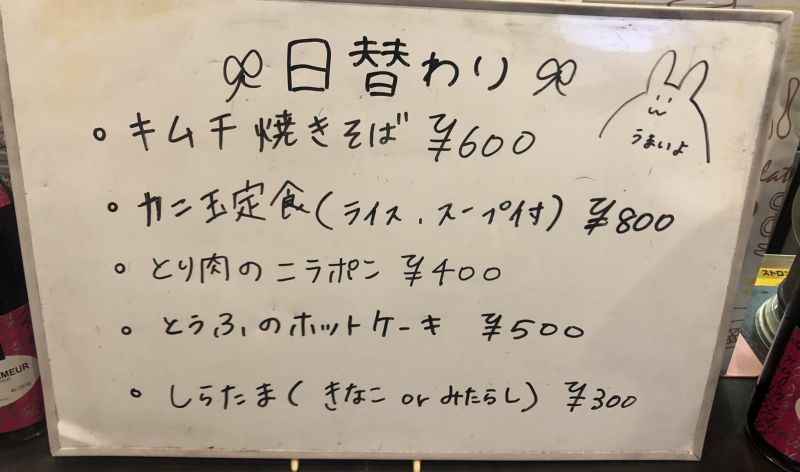 日替わり
うまいよ
・キムチ焼きそば ¥600
・カニ玉定食(ライス、スープ付) ¥800
・とり肉のニラポン ¥400
・とうふのホットケーキ ¥500
・しらたま(きなこ or みたらし) ¥300
ストロン
MEUR